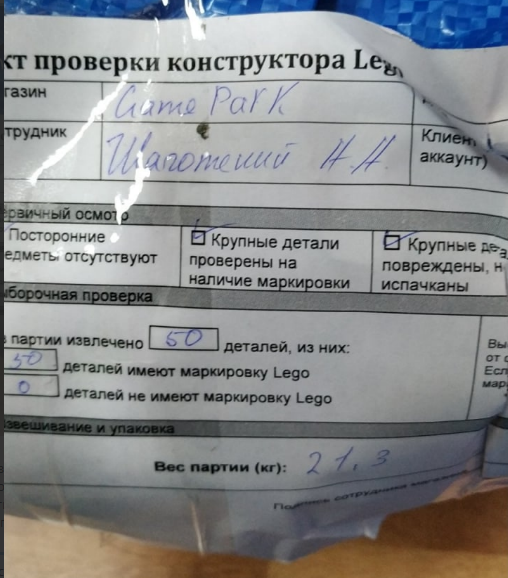 кт проверки конструктора Lego
газин Game Park
трудник Н.А. Клиен
аккаунт)
ервичный осмотр
Посторонние
едметы отсутствуют
Крупные детали
проверены на
наличие маркировки
Крупные дета
повреждены, н
испачканы
ыборочная проверка
партии извлечено 50 деталей, из них:
50 деталей имеют маркировку Lego
0 деталей не имеют маркировку Lego
Вы
от с
Есл
мар
звешивание и упаковка
Вес партии (кг): 21,3
Подпись сотрудника магази